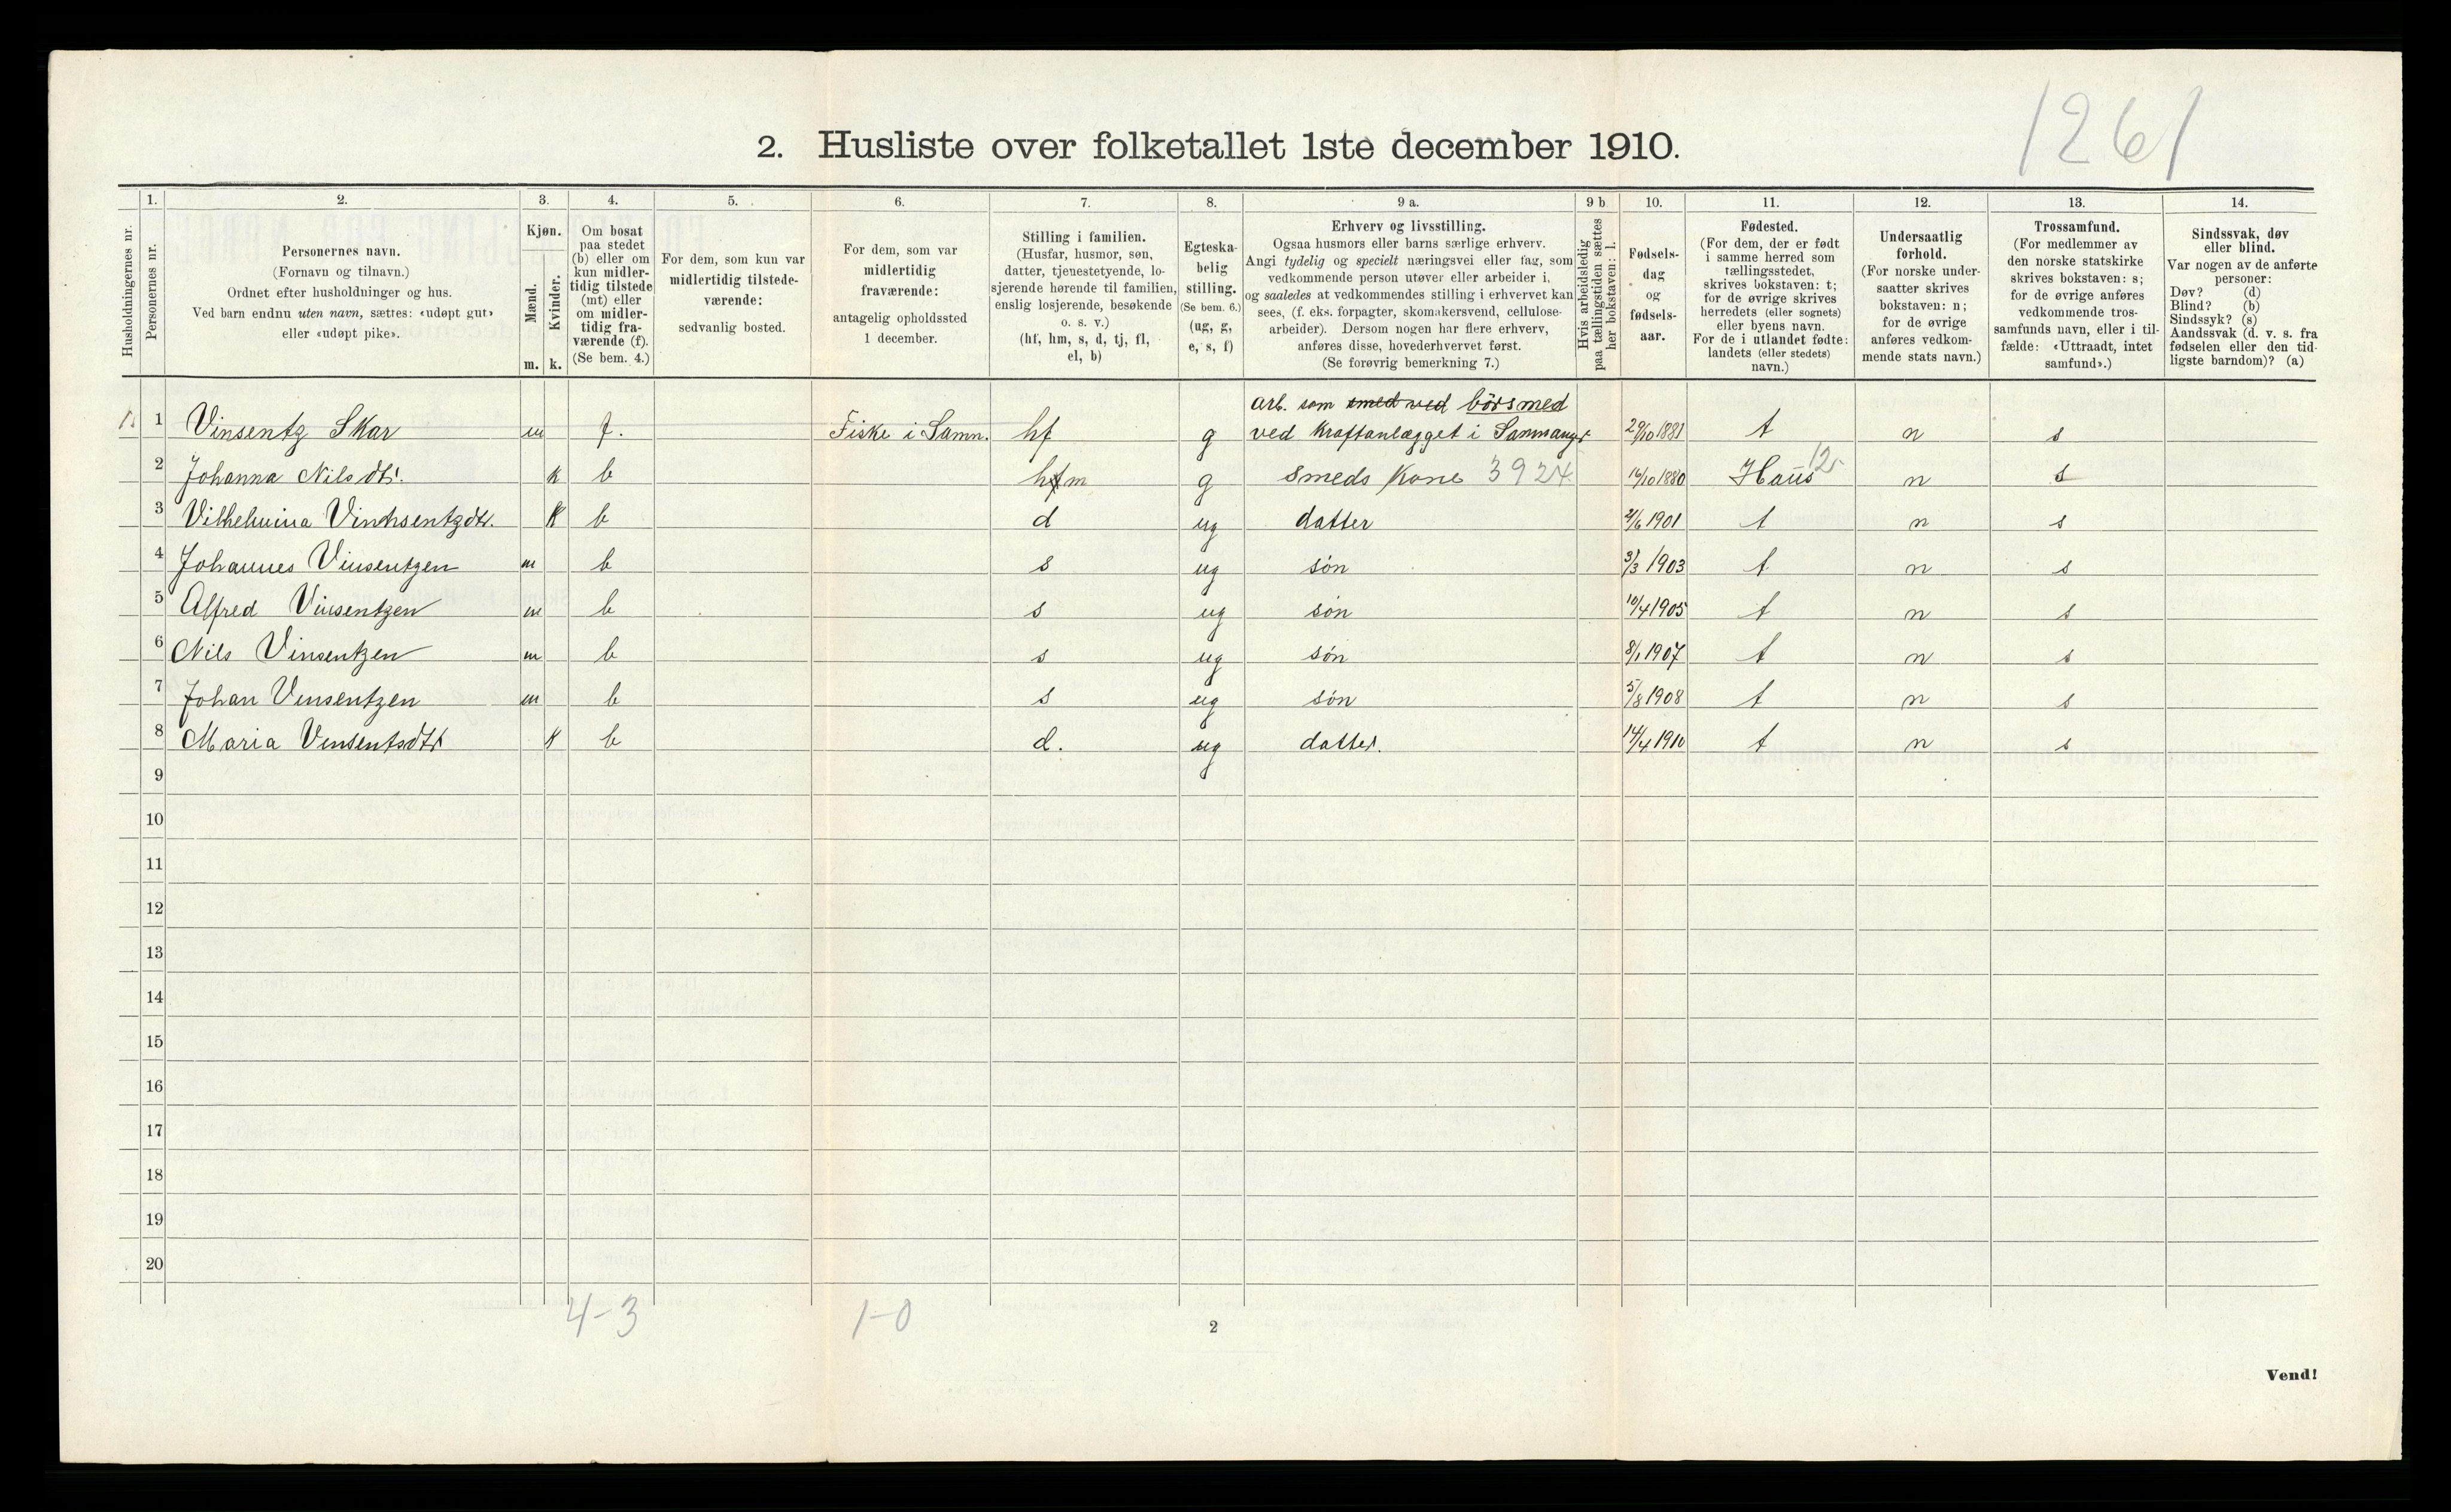 1261
2. Husliste over folketallet 1ste december 1910.
1. 2. 3. 4. 5. 6. 7. 8. 9 a. 9 b 10. 11. 12. 13. 14.
Husholdningernes nr.
Personernes nr.
Personernes navn.
(Fornavn og tilnavn.)
Ordnet efter husholdninger og hus.
Ved barn endnu uten navn, sættes: «udøpt gut»
eller «udøpt pike».
Kjøn.
Mænd.
Kvinder.
m. k.
Om bosat
paa stedet
(b) eller om
kun midler-
tidig tilstede
(mt) eller
om midler-
tidig fra-
værende (f).
(Se bem. 4.)
For dem, som kun var
midlertidig tilstede-
værende:
sedvanlig bosted.
For dem, som var
midlertidig
fraværende:
antagelig opholdssted
1 december.
Stilling i familien.
(Husfar, husmor, søn,
datter, tjenestetyende, lo-
sjerende hørende til familien,
enslig losjerende, besøkende
o. s. v.)
(hf, hm, s, d, tj, fl,
el, b)
Egteska-
belig
stilling.
(Se bem. 6.)
(ug, g,
e, s, f)
Erhverv og livsstilling.
Ogsaa husmors eller barns særlige erhverv.
Angi tydelig og specielt næringsvei eller fag, som
vedkommende person utøver eller arbeider i,
og saaledes at vedkommendes stilling i erhvervet kan
sees, (f. eks. forpagter, skomakersvend, cellulose-
arbeider). Dersom nogen har flere erhverv,
anføres disse, hovederhvervet først.
(Se forøvrig bemerkning 7.)
Hvis arbeidsledig
paa tællingstiden sættes
her bokstaven: l.
Fødsels-
dag
og
fødsels-
aar.
Fødested.
(For dem, der er født
i samme herred som
tællingsstedet,
skrives bokstaven: t;
for de øvrige skrives
herredets (eller sognets)
eller byens navn.
For de i utlandet fødte:
landets (eller stedets)
navn.)
Undersaatlig
forhold.
(For norske under-
saatter skrives
bokstaven: n;
for de øvrige
anføres vedkom-
mende stats navn.)
Trossamfund.
(For medlemmer av
den norske statskirke
skrives bokstaven: s;
for de øvrige anføres
vedkommende tros-
samfunds navn, eller i til-
fælde: «Uttraadt, intet
samfund».)
Sindssvak, døv
eller blind.
Var nogen av de anførte
personer:
Døv? (d)
Blind? (b)
Sindssyk? (s)
Aandssvak (d. v. s. fra
fødselen eller den tid-
ligste barndom)? (a)
arb. som smed ved börsmed
1 Vinsentz Skar m f. Fiske i Samn. hf g ved Kraftanlægget i Sammanger 29/10 1881 t n s
2 Johanna Nilsdtr. k b hfm g smeds Kone 3924 16/10 1880 Haus 12. n s
3 Vilhelmina Vinchsentzdtr. K b d ug datter 21/6 1901 t n s
4 Johannes Vinsentzen m b s ug sön 31/3 1903 t n s
5 Alfred Vinsentzen m b s ug sön 10/4 1905 t n s
6 Nils Vinsentzen m b s ug sön 8/1 1907 t n s
7 Johan Vinsentzen m b s ug sön 5/8 1908 t n s
8 Maria Vinsentsdtr K b d. ug datter. 14/4 1910 t n s
9
10
11
12
13
14
15
16
17
18
19
20
4-3 1-0
2
Vend!